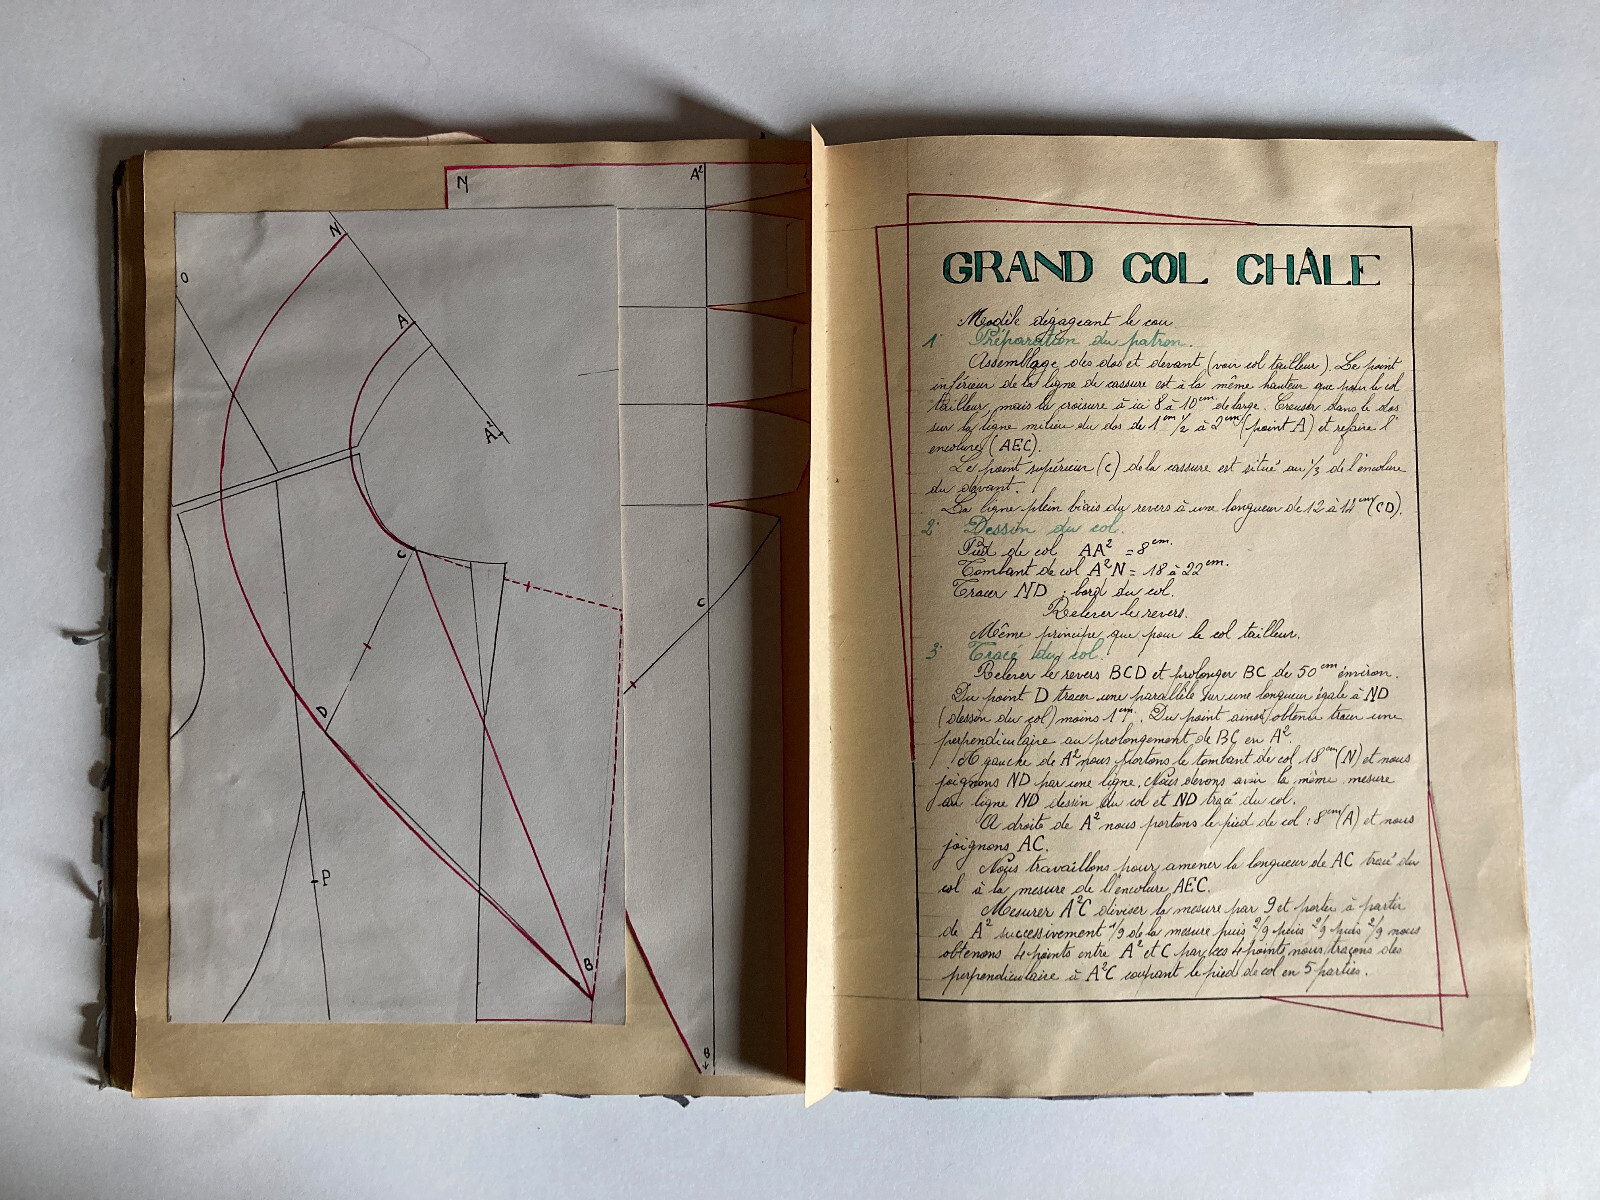 N
A²
O
N
A
A²
C
C
D
P
B
B
GRAND COL CHÂLE
Modèle dégageant le cou
1° Préparation du patron.
Assemblage des dos et devant (voir col tailleur). Le point
inférieur de la ligne de cassure est à la même hauteur que pour le col
tailleur, mais la croisure à ici 8 à 10cm de large. Creuser dans le dos
sur la ligne milieu du dos de 1cm 1/2 à 2cm (point A) et refaire l'
encolure (AEC).
Le point supérieur (C) de la cassure est situé au 1/3 de l'encolure
du devant.
La ligne plein biais du revers à une longueur de 12 à 14cm (CD).
2° Dessin du col.
Pied de col AA² = 8cm.
Tombant de col A²N = 18 à 22cm.
Tracer ND : bord du col.
Relever le revers.
Même principe que pour le col tailleur.
3° Tracé du col.
Relever le revers BCD et prolonger BC de 50cm environ.
Du point D tracer une parallèle sur une longueur égale à ND
(dessin du col) moins 1cm. Du point ainsi obtenu tracer une
perpendiculaire au prolongement de BC en A².
A gauche de A² nous portons le tombant de col 18cm (N) et nous
joignons ND par une ligne. Nous devons avoir la même mesure
au ligne ND dessin du col et ND tracé du col.
A droite de A² nous portons le pied de col : 8cm (A) et nous
joignons AC.
Nous travaillons pour amener la longueur de AC tracé du
col à la mesure de l'encolure AEC.
Mesurer A²C diviser la mesure par 9 et porter à partir
de A² successivement 1/9 de la mesure puis 2/9 puis 2/9 puis 2/9 nous
obtenons 4 points entre A² et C par ces 4 points nous traçons des
perpendiculaire à A²C coupant le pied de col en 5 parties.